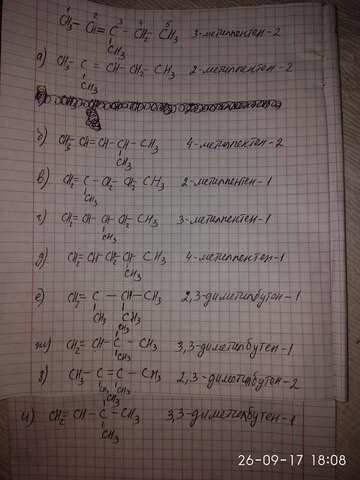 1 2 3 4 5
CH3- CH = C - CH2 CH3 3-метилпентен-2
CH3
а) CH3- C = CH-CH2-CH3 2-метилпентен-2
CH3
б) CH3 CH=CH-CH-CH3 4-метилпентен-2
CH3
в) CH2=C-CH2-CH2 CH3 2-метилпентен-1
CH3
г) CH2=CH-CH-CH2 CH3 3-метилпентен-1
CH3
д) CH2=CH-CH2-CH CH3 4-метилпентен-1
CH3
е) CH2=C - CH-CH3 2,3-диметилбутен-1
CH3 CH3
CH3
ж) CH2=CH-C - CH3 3,3-диметилбутен-1
CH3
з) CH3-C=C-CH3 2,3-диметилбутен-2
CH3 CH3
CH3
и) CH2=CH-C-CH3 3,3-диметилбутен-1
CH3
26-09-17 18:08